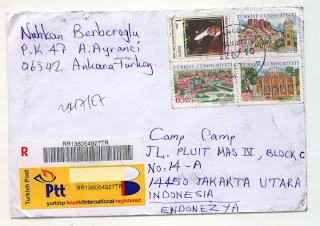 Nuhkan Berberoglu
P.K 47 A.Ayrancı
06542 Ankara-Turkey
TÜRKİYE CUMHURİYETİ
TÜRKİYE CUMHURİYETİ
TÜRKİYE CUMHURİYETİ
R
RR136054927TR
RR136054927TR
Turkish Post
Ptt
yurtdışı kayıtlı/international registered
Camp Camp
JL. PLUIT MAS IV, BLOCK C
No=14-A
14450 JAKARTA UTARA
INDONESIA
ENDONEZYA